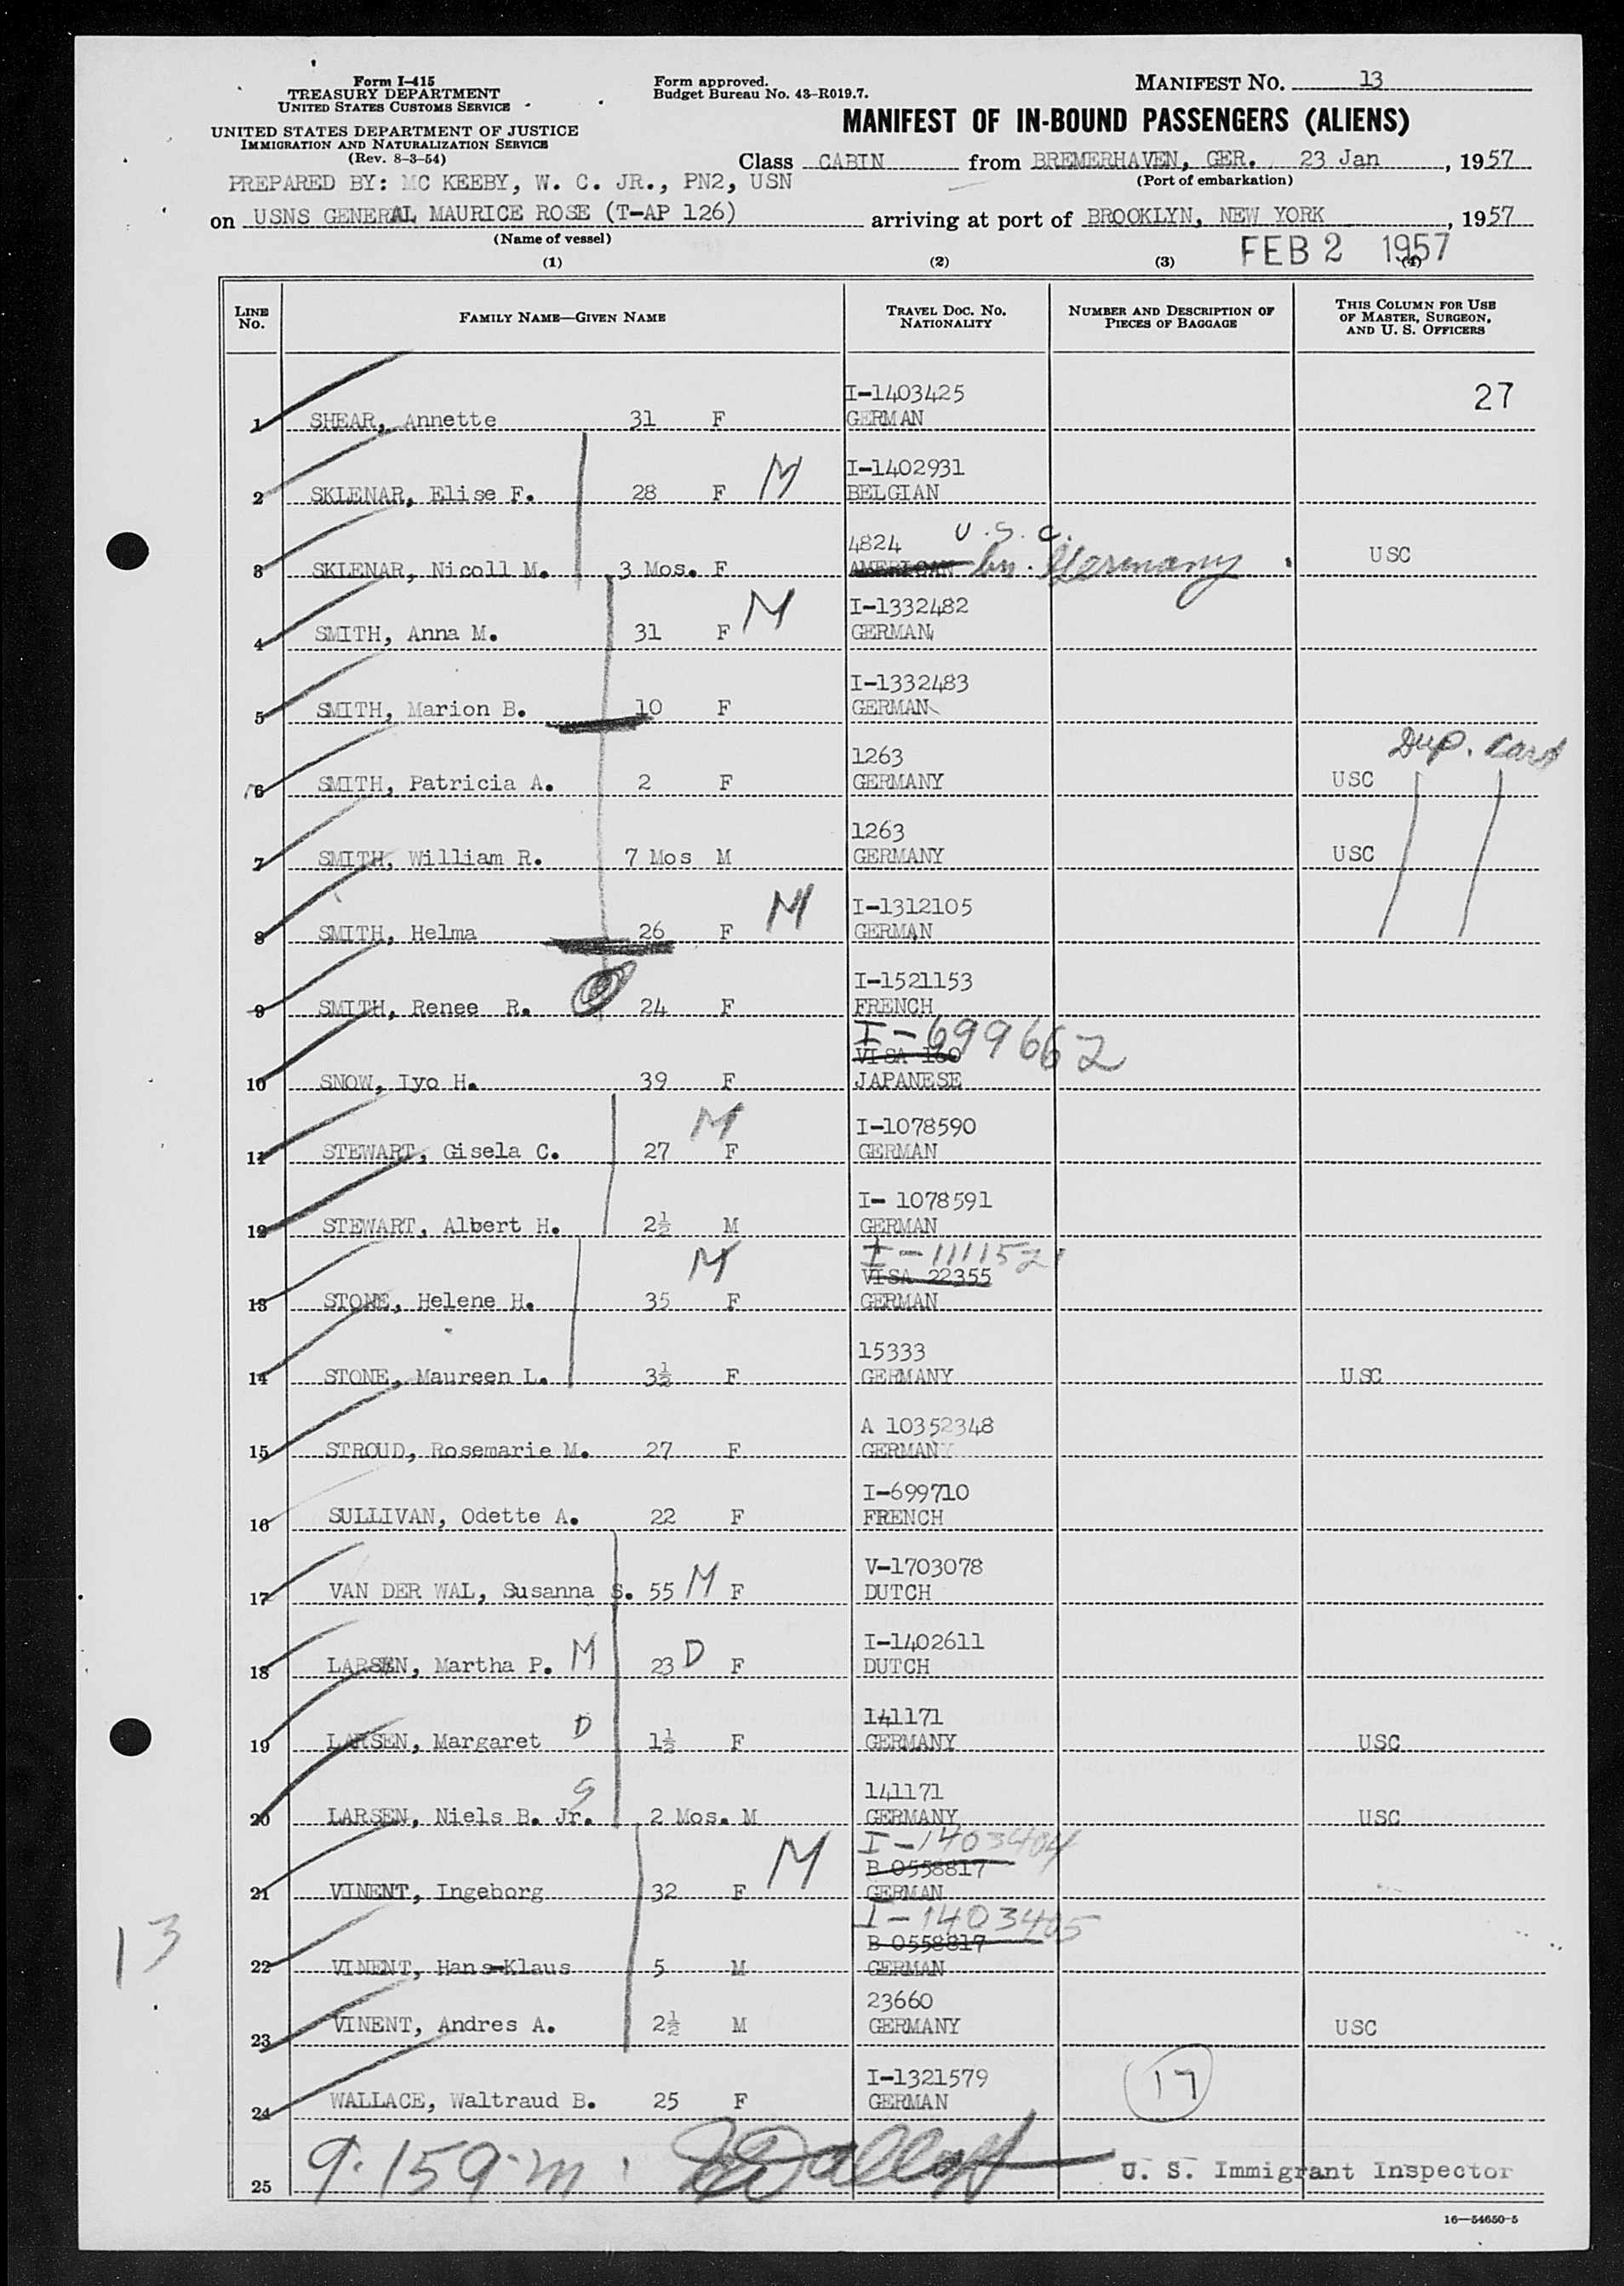 Form I-415
TREASURY DEPARTMENT
UNITED STATES CUSTOMS SERVICE
UNITED STATES DEPARTMENT OF JUSTICE
IMMIGRATION AND NATURALIZATION SERVICE
(Rev. 8-3-54)
Form approved.
Budget Bureau No. 43-R019.7.
MANIFEST NO. 13
MANIFEST OF IN-BOUND PASSENGERS (ALIENS)
Class CABIN from BREMERHAVEN, GER. 23 Jan, 1957
(Port of embarkation)
PREPARED BY: MC KEEBY, W. C. JR., PN2, USN
on USNS GENERAL MAURICE ROSE (T-AP 126) arriving at port of BROOKLYN, NEW YORK, 1957
(Name of vessel)
FEB 2 1957
(1) (2) (3) (4)
LINE NO. FAMILY NAME—GIVEN NAME TRAVEL DOC. NO. NATIONALITY NUMBER AND DESCRIPTION OF PIECES OF BAGGAGE THIS COLUMN FOR USE OF MASTER, SURGEON, AND U. S. OFFICERS
I-1403425 27
1 SHEAR, Annette 31 F GERMAN
I-1402931
2 SKLENAR, Elise F. 28 F M BELGIAN
4824 U.S.C.
3 SKLENAR, Nicoll M. 3 Mos. F AMERICAN bn. Germany USC
I-1332482
4 SMITH, Anna M. 31 F M GERMAN
I-1332483
5 SMITH, Marion B. 10 F GERMAN
1263 Dup. Card
6 SMITH, Patricia A. 2 F GERMANY USC
1263
7 SMITH, William R. 7 Mos M GERMANY USC
I-1312105
8 SMITH, Helma 26 F M GERMAN
I-1521153
9 SMITH, Renee R. 24 F FRENCH
I-699662
VISA 160
10 SNOW, Iyo H. 39 F JAPANESE
I-1078590
11 STEWART, Gisela C. 27 M F GERMAN
I- 1078591
12 STEWART, Albert H. 2½ M GERMAN
I-1111521
VISA 22355
13 STONE, Helene H. 35 M F GERMAN
15333
14 STONE, Maureen L. 3½ F GERMANY USC
A 10352348
15 STROUD, Rosemarie M. 27 F GERMANY
I-699710
16 SULLIVAN, Odette A. 22 F FRENCH
V-1703078
17 VAN DER WAL, Susanna S. 55 M F DUTCH
I-1402611
18 LARSEN, Martha P. M 23 D F DUTCH
141171
19 LARSEN, Margaret D 1½ F GERMANY USC
141171
20 LARSEN, Niels B. Jr. S 2 Mos. M GERMANY USC
I-1403404
B 0558817
21 VINENT, Ingeborg 32 F M GERMAN
I-1403405
B 0558817
22 VINENT, Hans-Klaus 5 M GERMAN
13
23660
23 VINENT, Andres A. 2½ M GERMANY USC
I-1321579
24 WALLACE, Waltraud B. 25 F GERMAN 17
25 U. S. Immigrant Inspector
16—54650-5